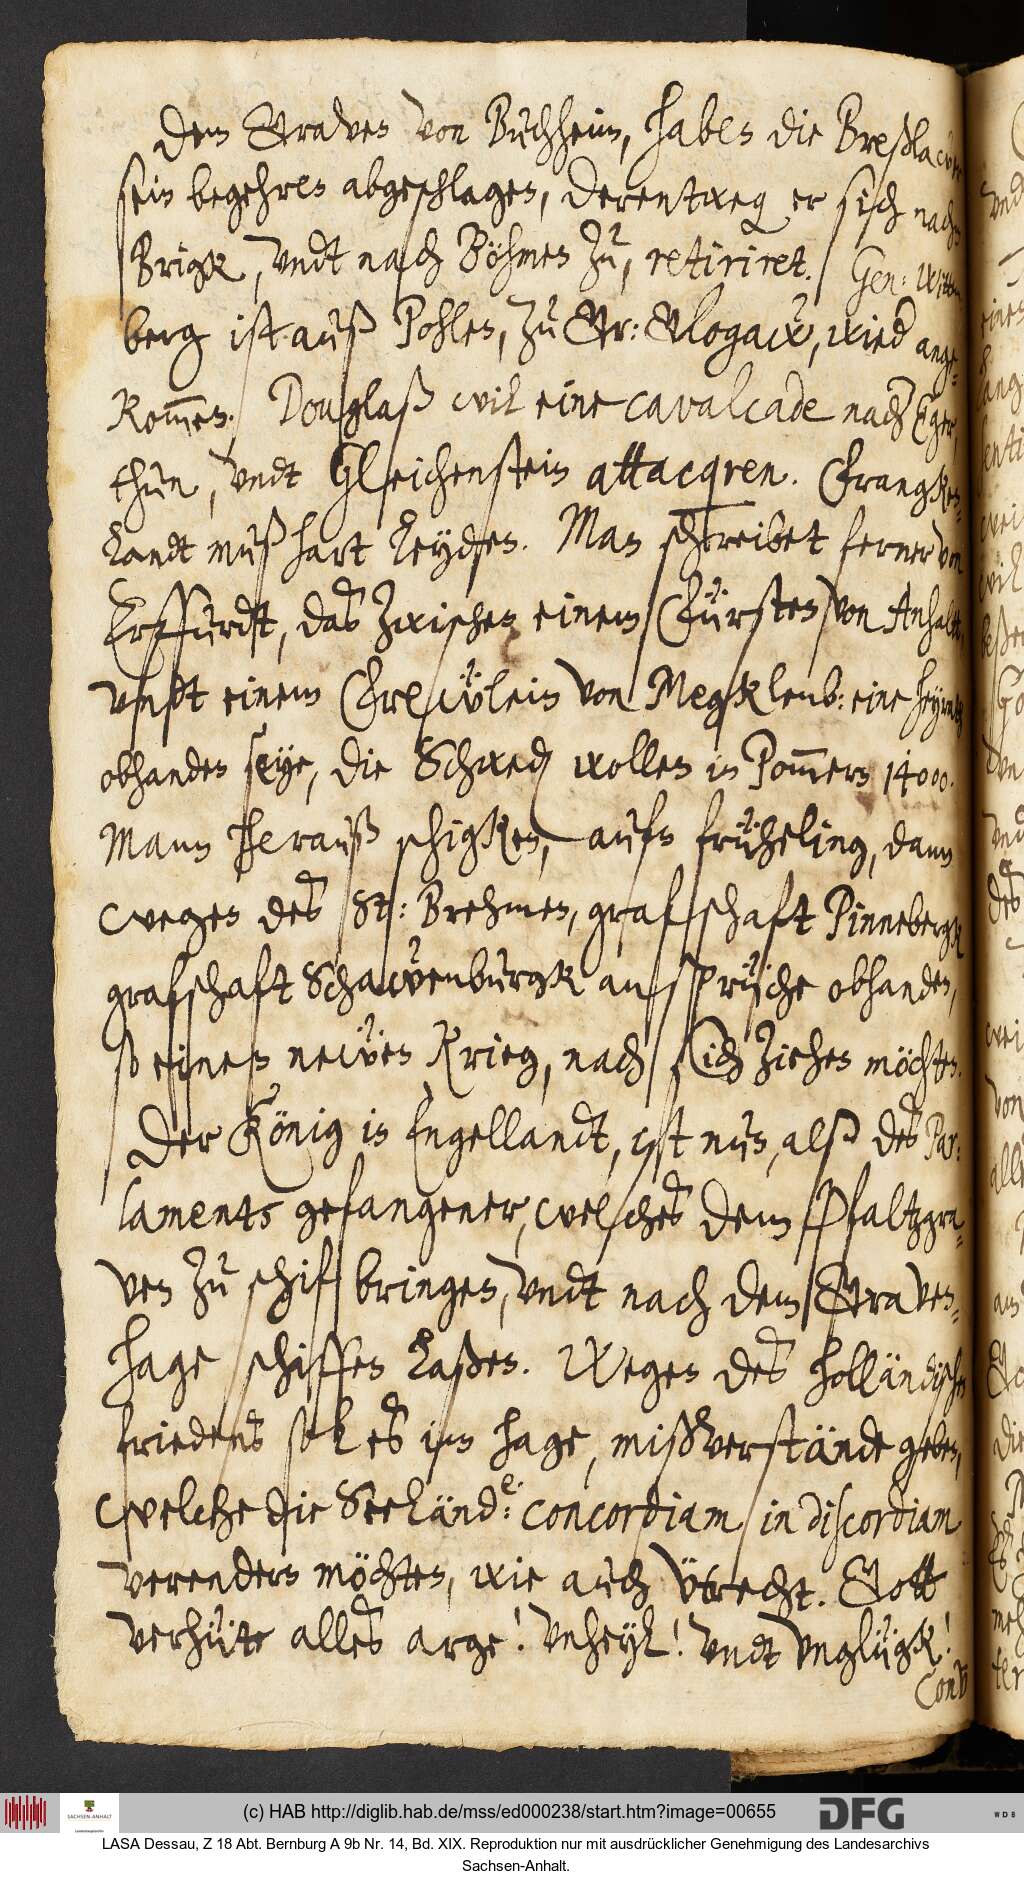 Dem Graven von Buchheim, haben die Breßlawer
sein begehren abgeschlagen, derentweg er sich nach
Brigk, undt nach Böhmen zu, retiriret. Gen: Witten-
berg ist auß Pohlen, zu Gr: Glogaw, wied ange-
kommen. Douglaß will eine cavalcade nach Eger,
thun, undt Gleichenstein attacqren. Frangken-
landt muß hart leyden. Man schreibet ferner von
Erffurdt, daß zwischen einem Fürsten von Anhaltt,
undt einem Frewlein von Megklenb: eine heyraht
obhanden seye, die Schwed wollen in Pommern 14000.
Mann herauß schigken, aufn früheling, dann
wegen des St: Brehmen, grafschaft Pinnebergk
grafschaft Schawenburgk ansprüche obhanden,
so einen newen Krieg, nach sich ziehen möchten.
Der König in Engellandt, ist nun, alß des Par-
laments gefangener, welches dem Pfaltzgra-
ven zu schif bringen, undt nach dem Graven-
hage schiffen laßen. Wegen des holländischen
friedens soll es im Hage, mißverstände geben,
welche die Seeländ:e concordiam in discordiam
verendern möchten, wie auch Ütrecht. Gott
verhüte alles arge! Unheyl! undt unglügk!
(c) HAB http://diglib.hab.de/mss/ed000238/start.htm?image=00655
DFG
WDB
SACHSEN-ANHALT
LASA Dessau, Z 18 Abt. Bernburg A 9b Nr. 14, Bd. XIX. Reproduktion nur mit ausdrücklicher Genehmigung des Landesarchivs
Sachsen-Anhalt.